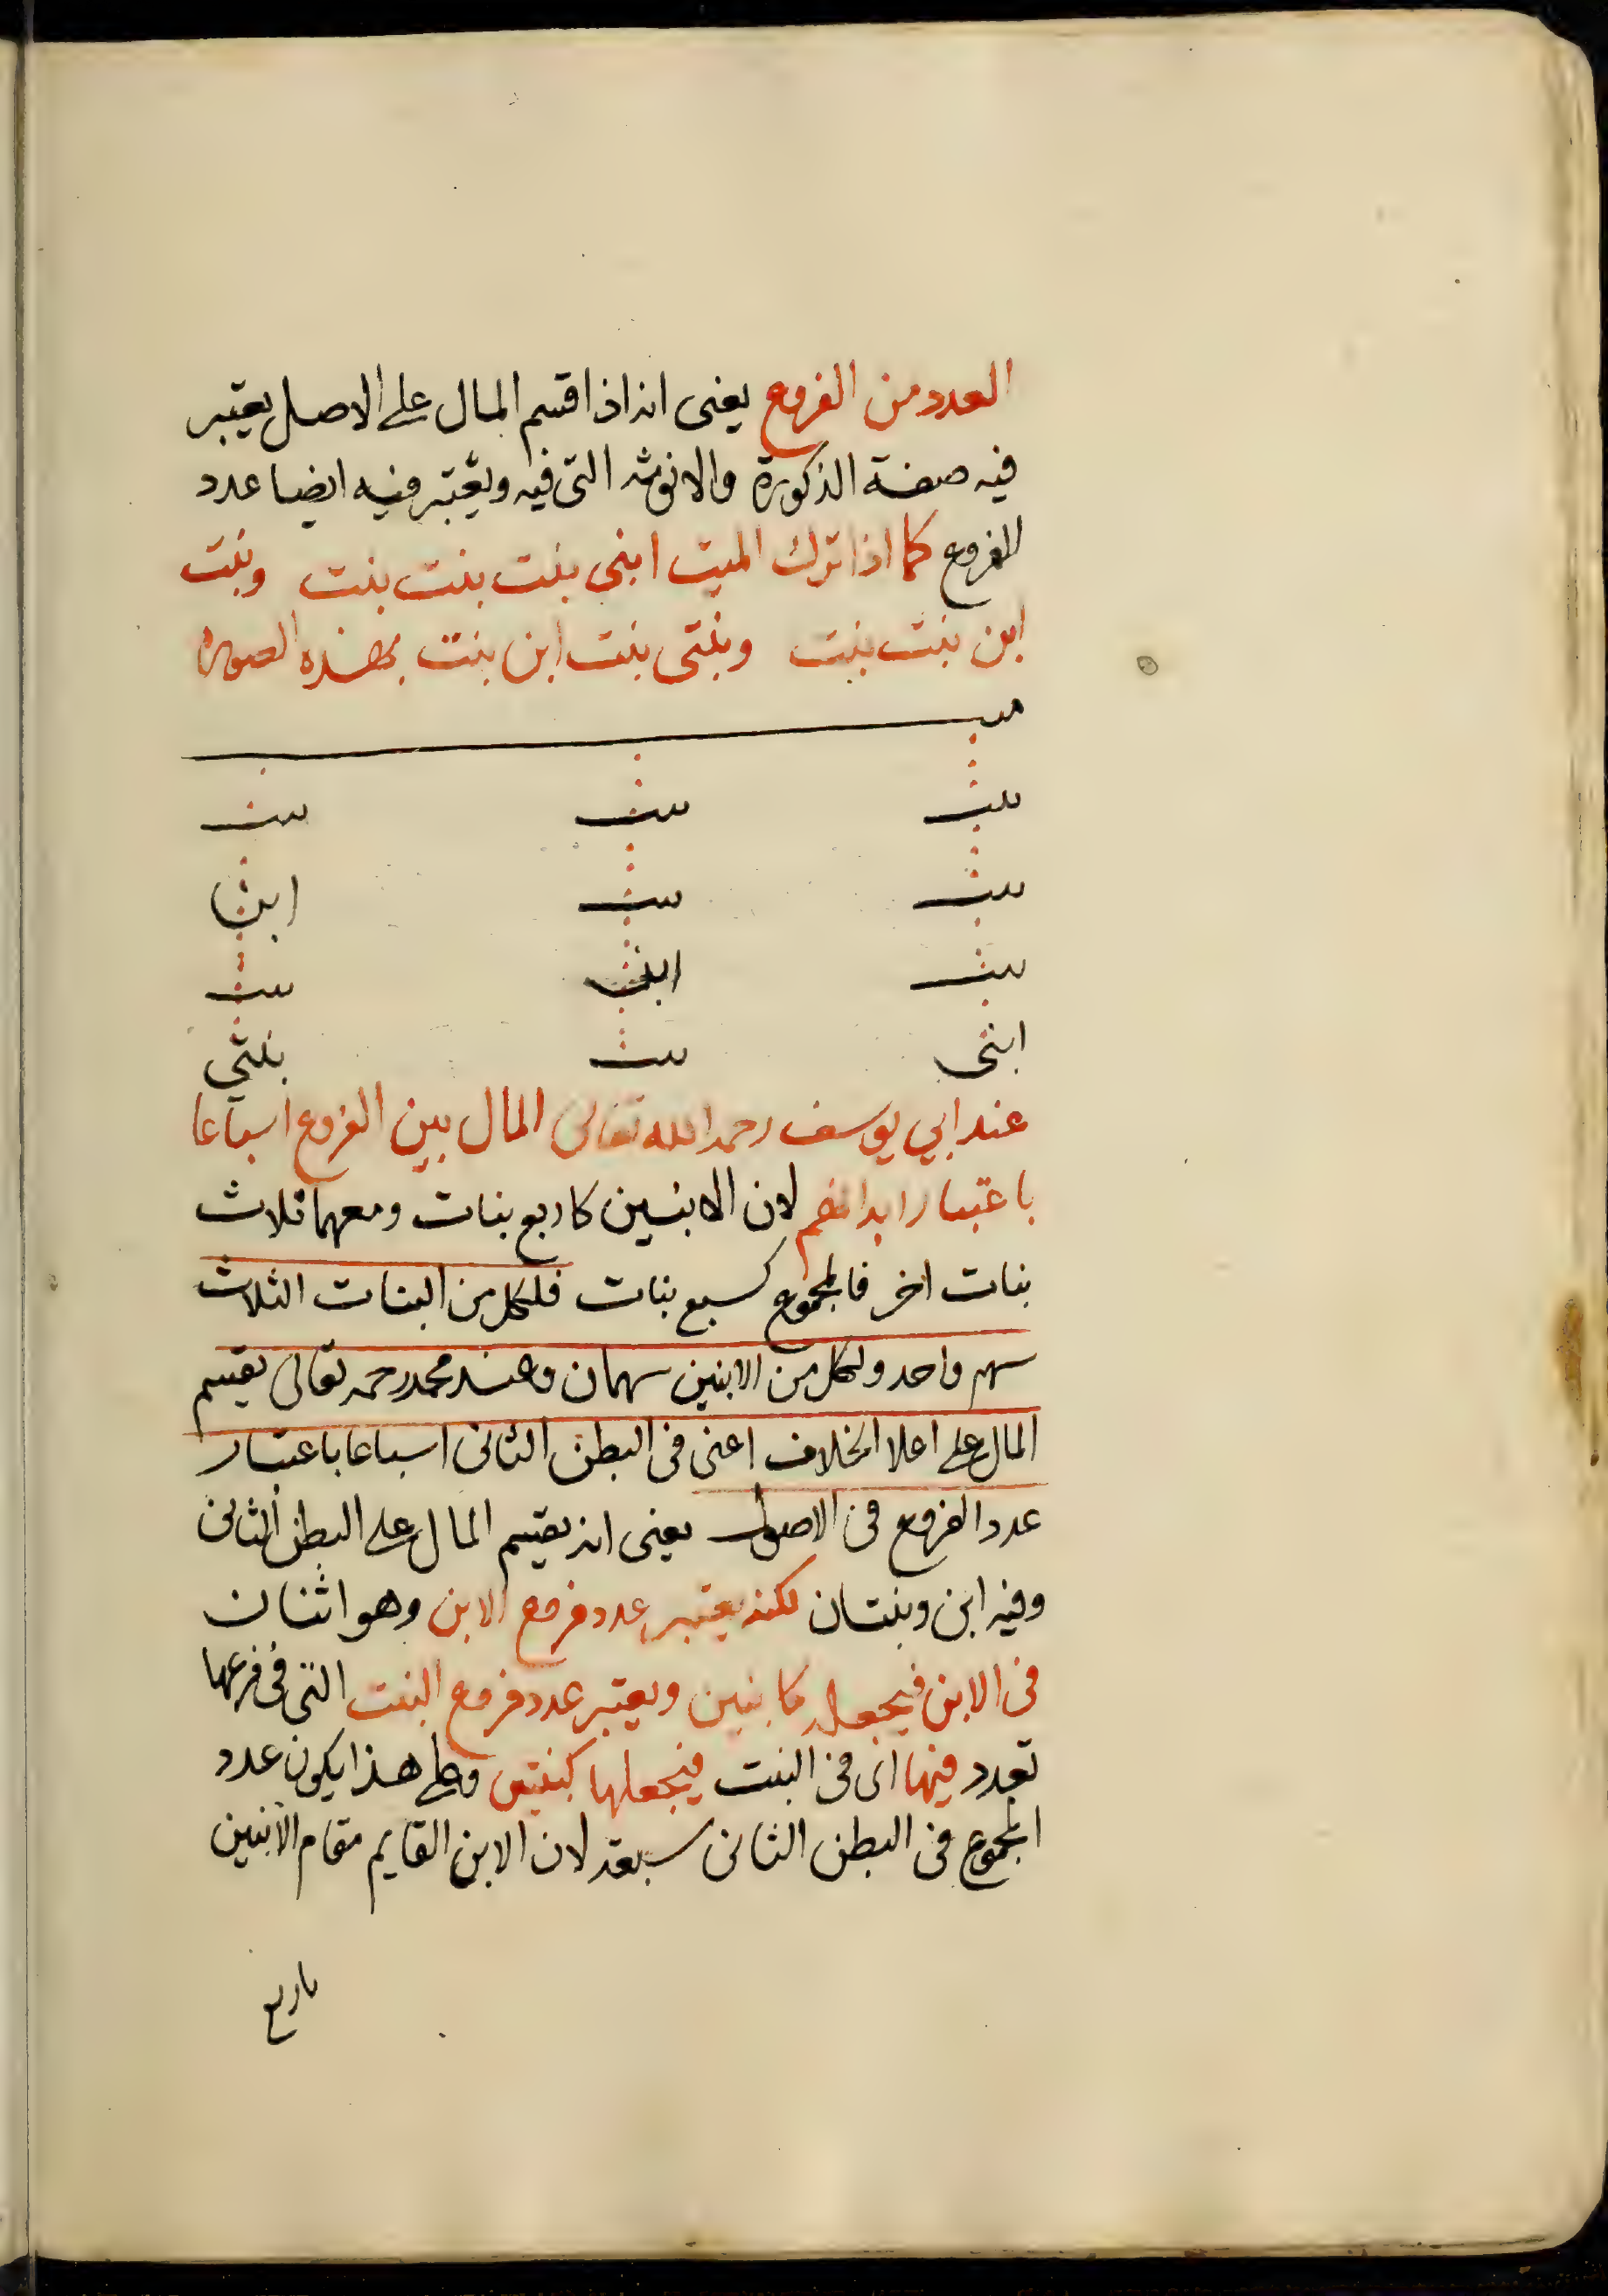 العدد من الفروع يعنى انه اذا قسم المال على الاصل يعتبر
فيه صفة الذكورة والانوثه التى فيه ويعتبر فيه ايضا عدد
الفروع كما اذا ترك الميت ابنى بنت بنت بنت وبنت
ابن بنت بنت وبنتى بنت ابن بنت بهذه الصورة
ميت
بنت بنت بنت
بنت بنت ابن
بنت ابن بنت
ابنى بنت بنتي
عند ابي يوسف رحمه الله تعالى المال بين الفروع اسباعا
باعتبار ابدانهم لان الابنين كاربع بنات ومعهما ثلاث
بنات اخر فالمجموع كسبع بنات فلكل من البنات الثلاث
سهم واحد ولكل من الابنين سهمان وعند محمد رحمه تعالى يقسم
المال على اعلا الخلاف اعنى فى البطن الثانى اسباعا باعتبار
عدد الفروع فى الاصول يعنى انه يقسم المال على البطن الثانى
وفيه ابن وبنتان لكنه يعتبر عدد فروع الابن وهو اثنان
فى الابن فيجعله كابنين ويعتبر عدد فروع البنت التى فى فرعها
تعدد فيها اى فى البنت فيجعلها كبنتين وعلى هذا يكون عدد
المجموع فى البطن الثانى سبعة لان الابن القايم مقام الابنين
باربع